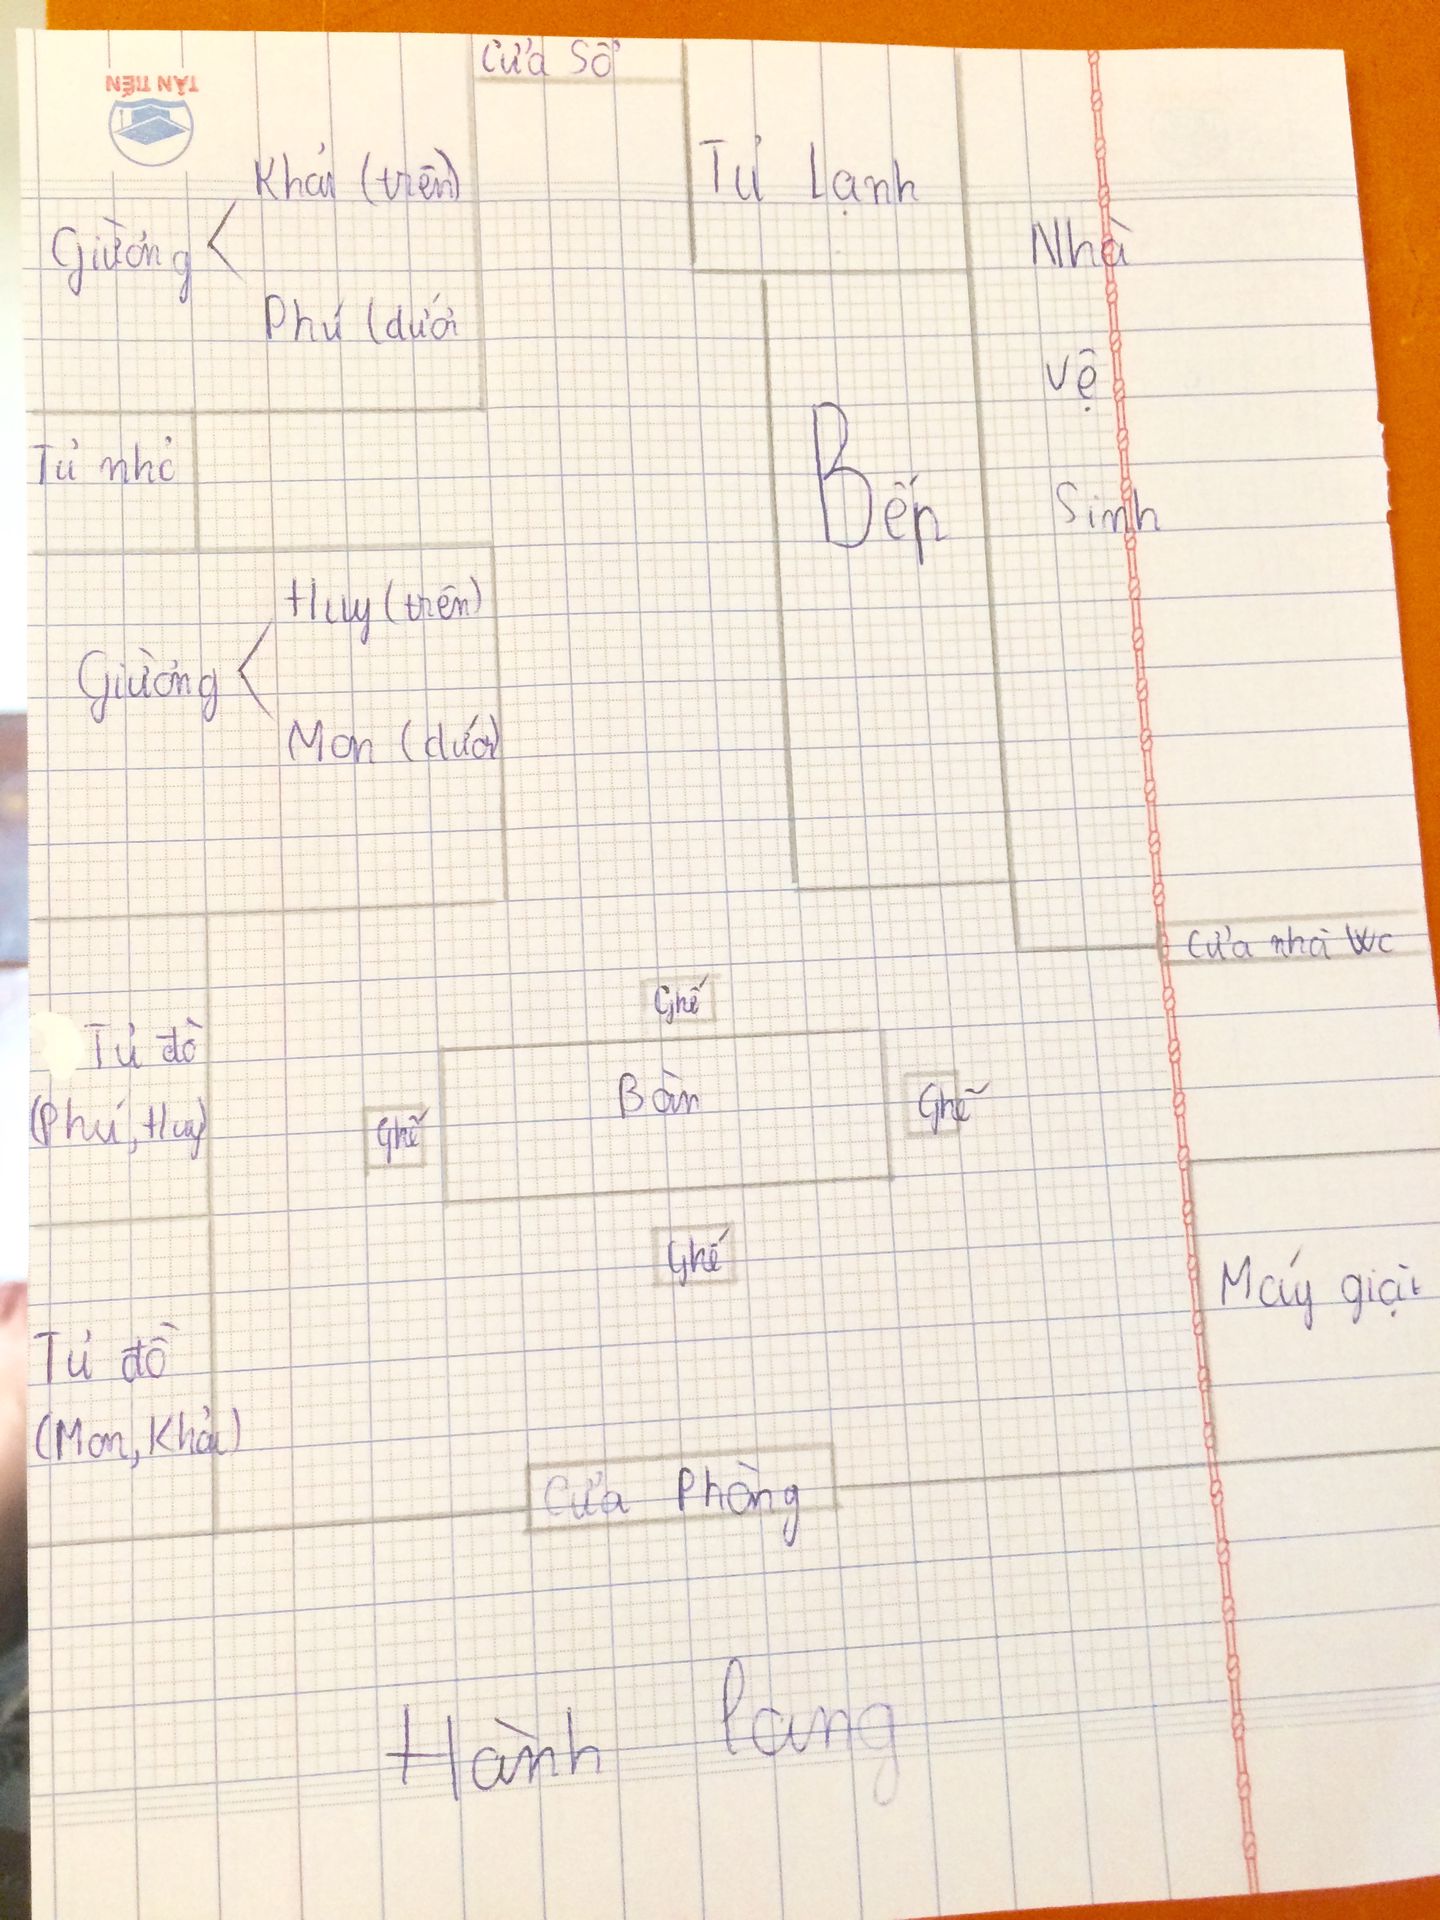 Cửa Sổ
TÂN TIẾN
Khải (trên)
Tủ Lạnh
Giường
Nhà
Phú (dưới
Vệ
Tủ nhỏ
Bếp
Sinh
Huy (trên)
Giường
Mon (dưới)
Cửa nhà WC
Ghế
Tủ đồ
Bàn
(Phú, Huy)
Ghế
Ghế
Ghế
Máy giặt
Tủ đồ
(Mon, Khải)
Cửa Phòng
Hành lang